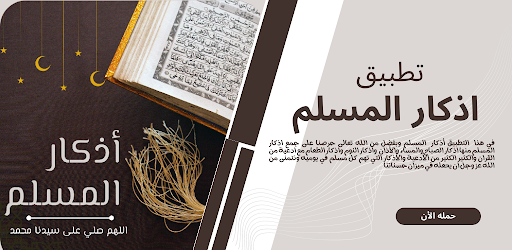 أذكار
المسلم
اللهم صلي على سيدنا محمد
تطبيق
اذكار المسلم
في هذا التطبيق أذكار المسلم وبفضل من الله تعالى حرصنا على جمع اذكار
المسلم منها اذكار الصباح والمساء والأذان واذكار النوم واذكار الطعام مع ادعية من
القران والكثير الكثير من الأدعية والأذكار التي تهم كل مسلم في يومية ونتمنى من
الله عز وجل ان يجعله في ميزان حسناتنا
حمله الأن